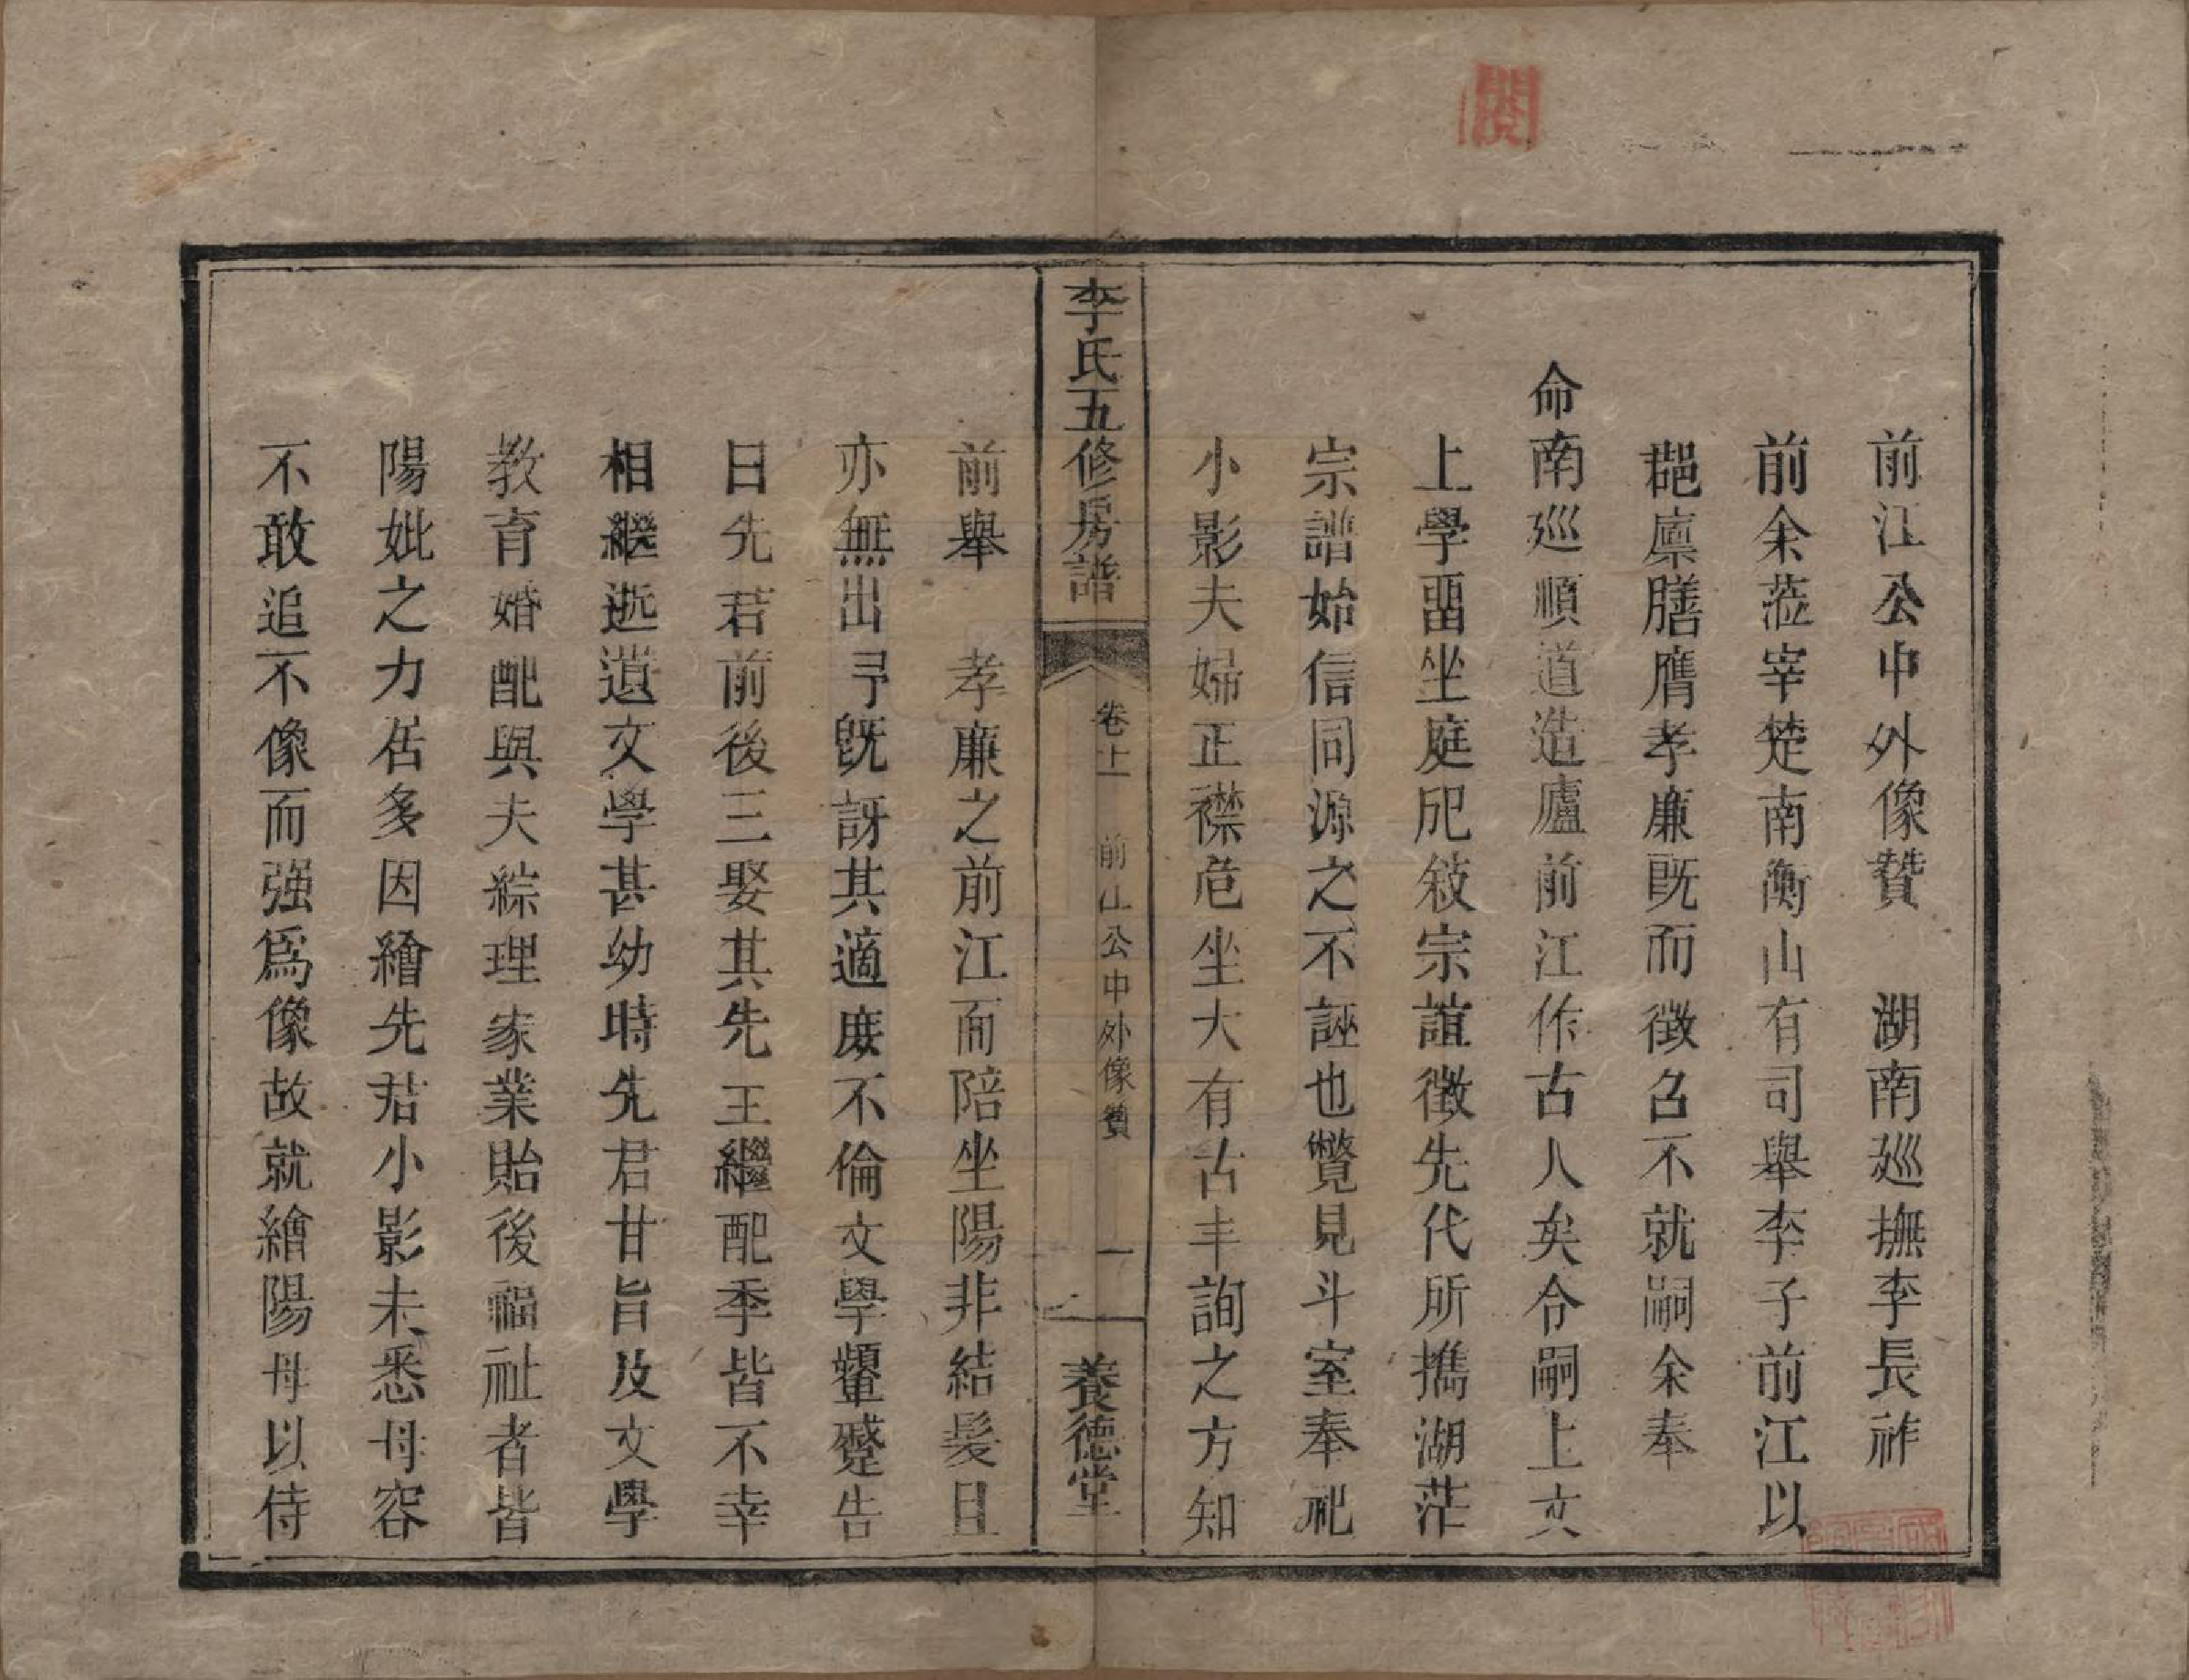 前江公中外像贊　湖南巡撫李長祚
前余蒞宰楚南衡山有司舉李子前江以
郡廩膳膺孝廉既而徵召不就嗣余奉
命南巡順道造廬前江作古人矣令嗣上文
上學畱坐庭戺敍宗誼徵先代所擕湖茫
宗譜始信同源之不誣也瞥見斗室奉祀
小影夫婦正襟危坐大有古丰詢之方知
李氏五修房譜
卷上
前江公中外像贊
一
養德堂
前舉　孝廉之前江而陪坐陽非結髮且
亦無出予旣訝其適庶不倫文學顰蹙告
曰先君前後三娶其先王繼配季皆不幸
相繼逝遺文學甚幼時先君甘旨及文學
教育婚配與夫綜理家業貽後福祉者皆
陽妣之力居多因繪先君小影未悉母容
不敢追不像而强爲像故就繪陽母以侍